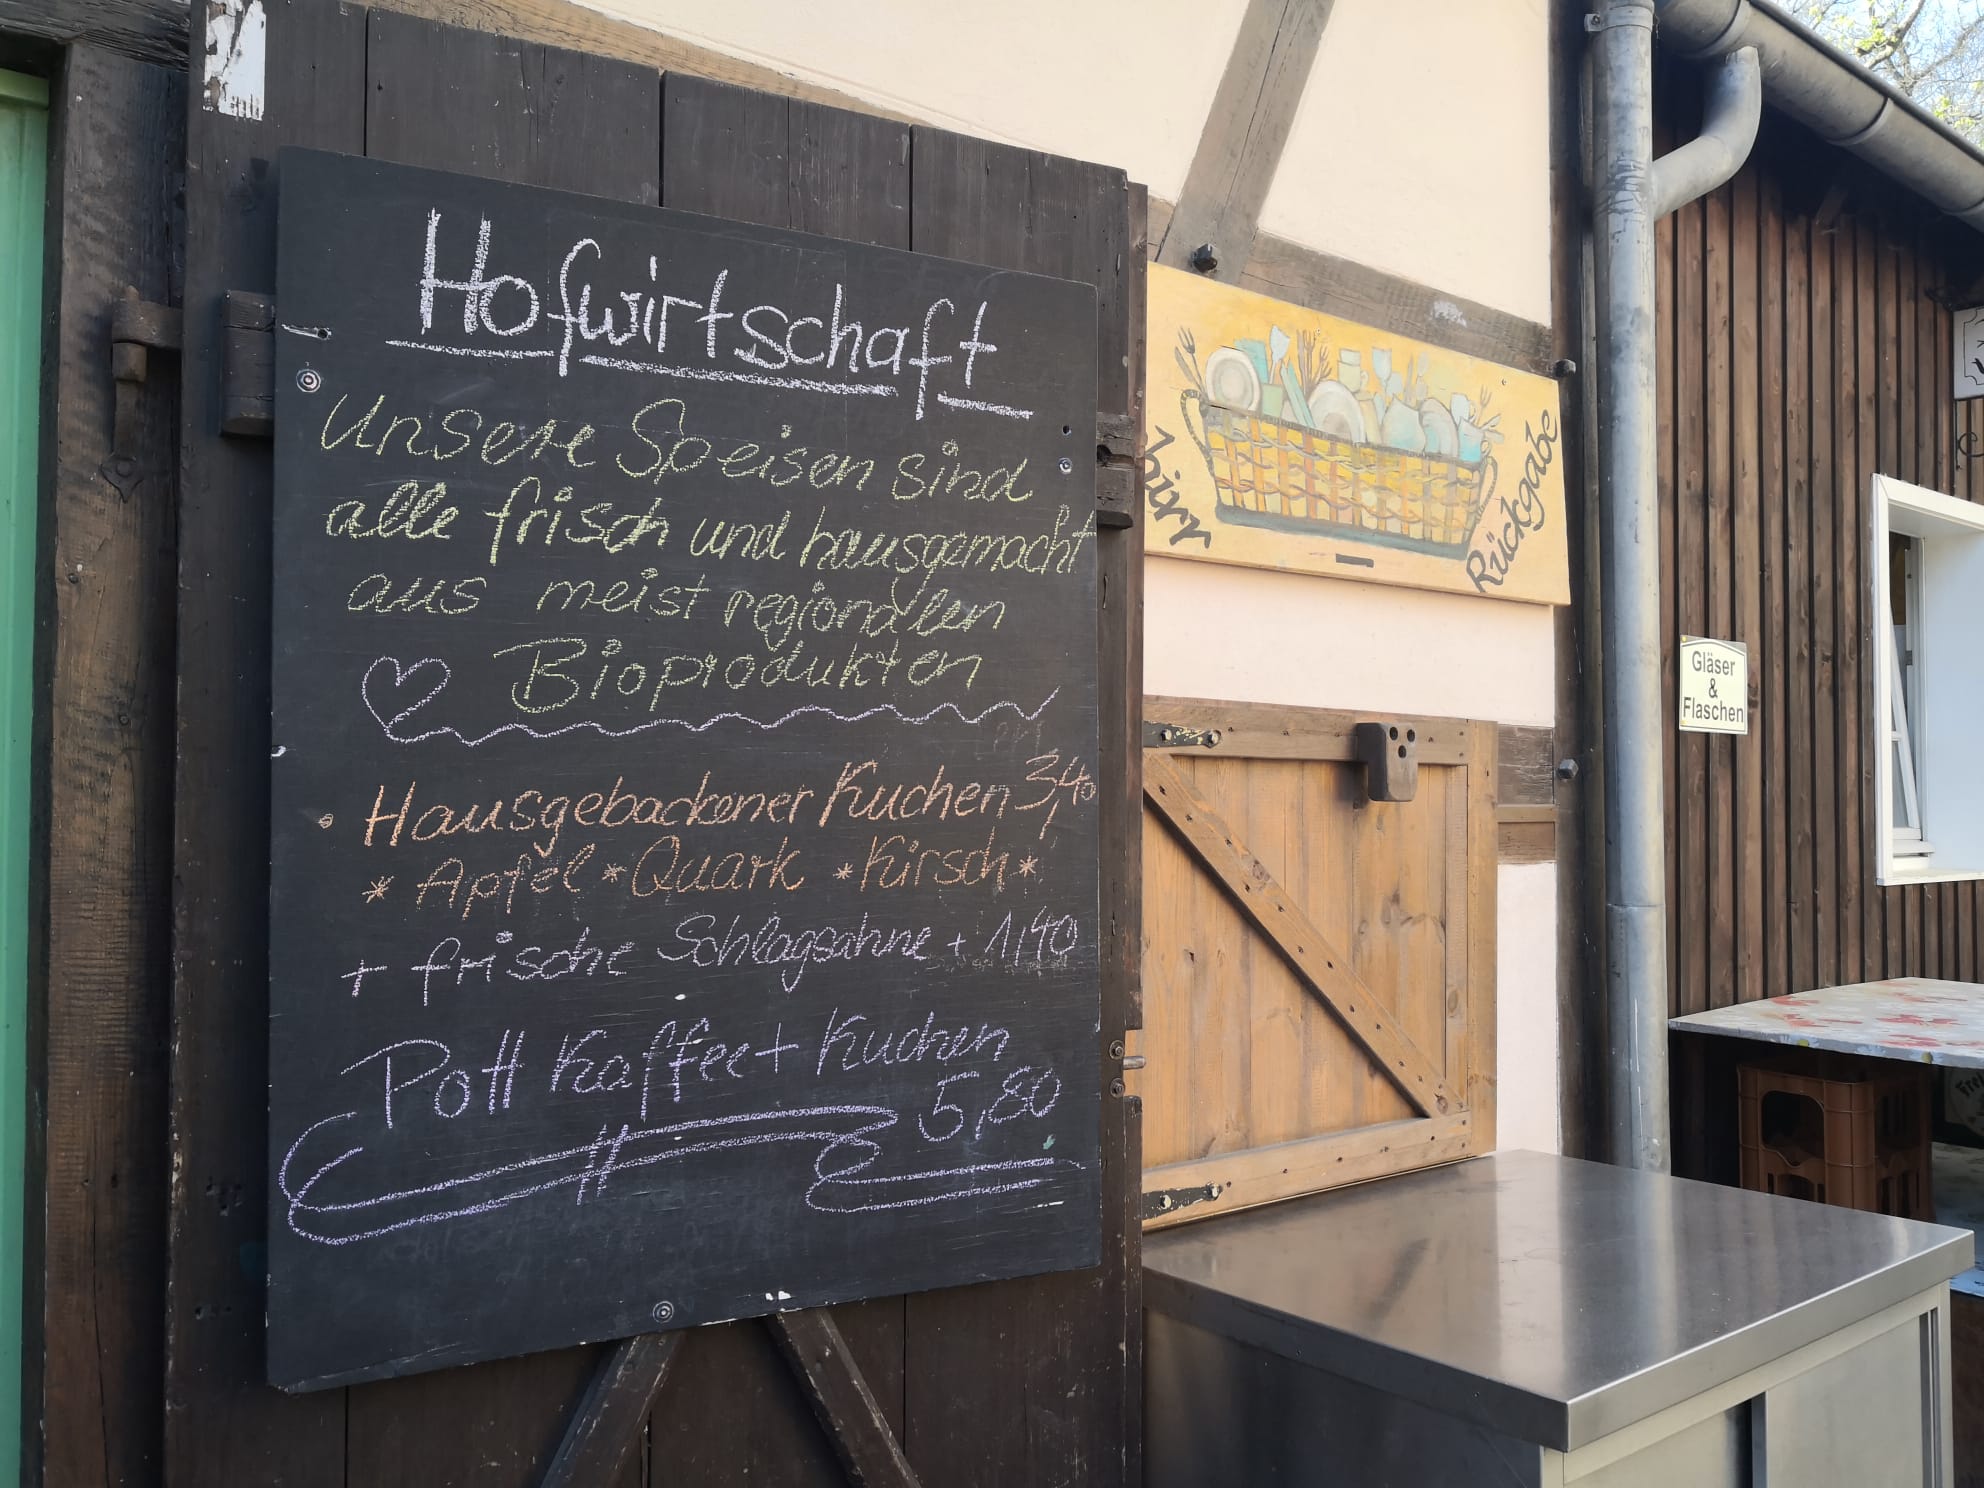 Hofwirtschaft
Unsere Speisen sind
alle frisch und hausgemacht
aus meist regionalen
Bioprodukten
• Hausgebackener Kuchen 3,40
* Apfel * Quark * Kirsch *
+ frische Schlagsahne + 1,40
Pott Kaffee + Kuchen
5,80
hirr
Rückgabe
Gläser
&
Flaschen